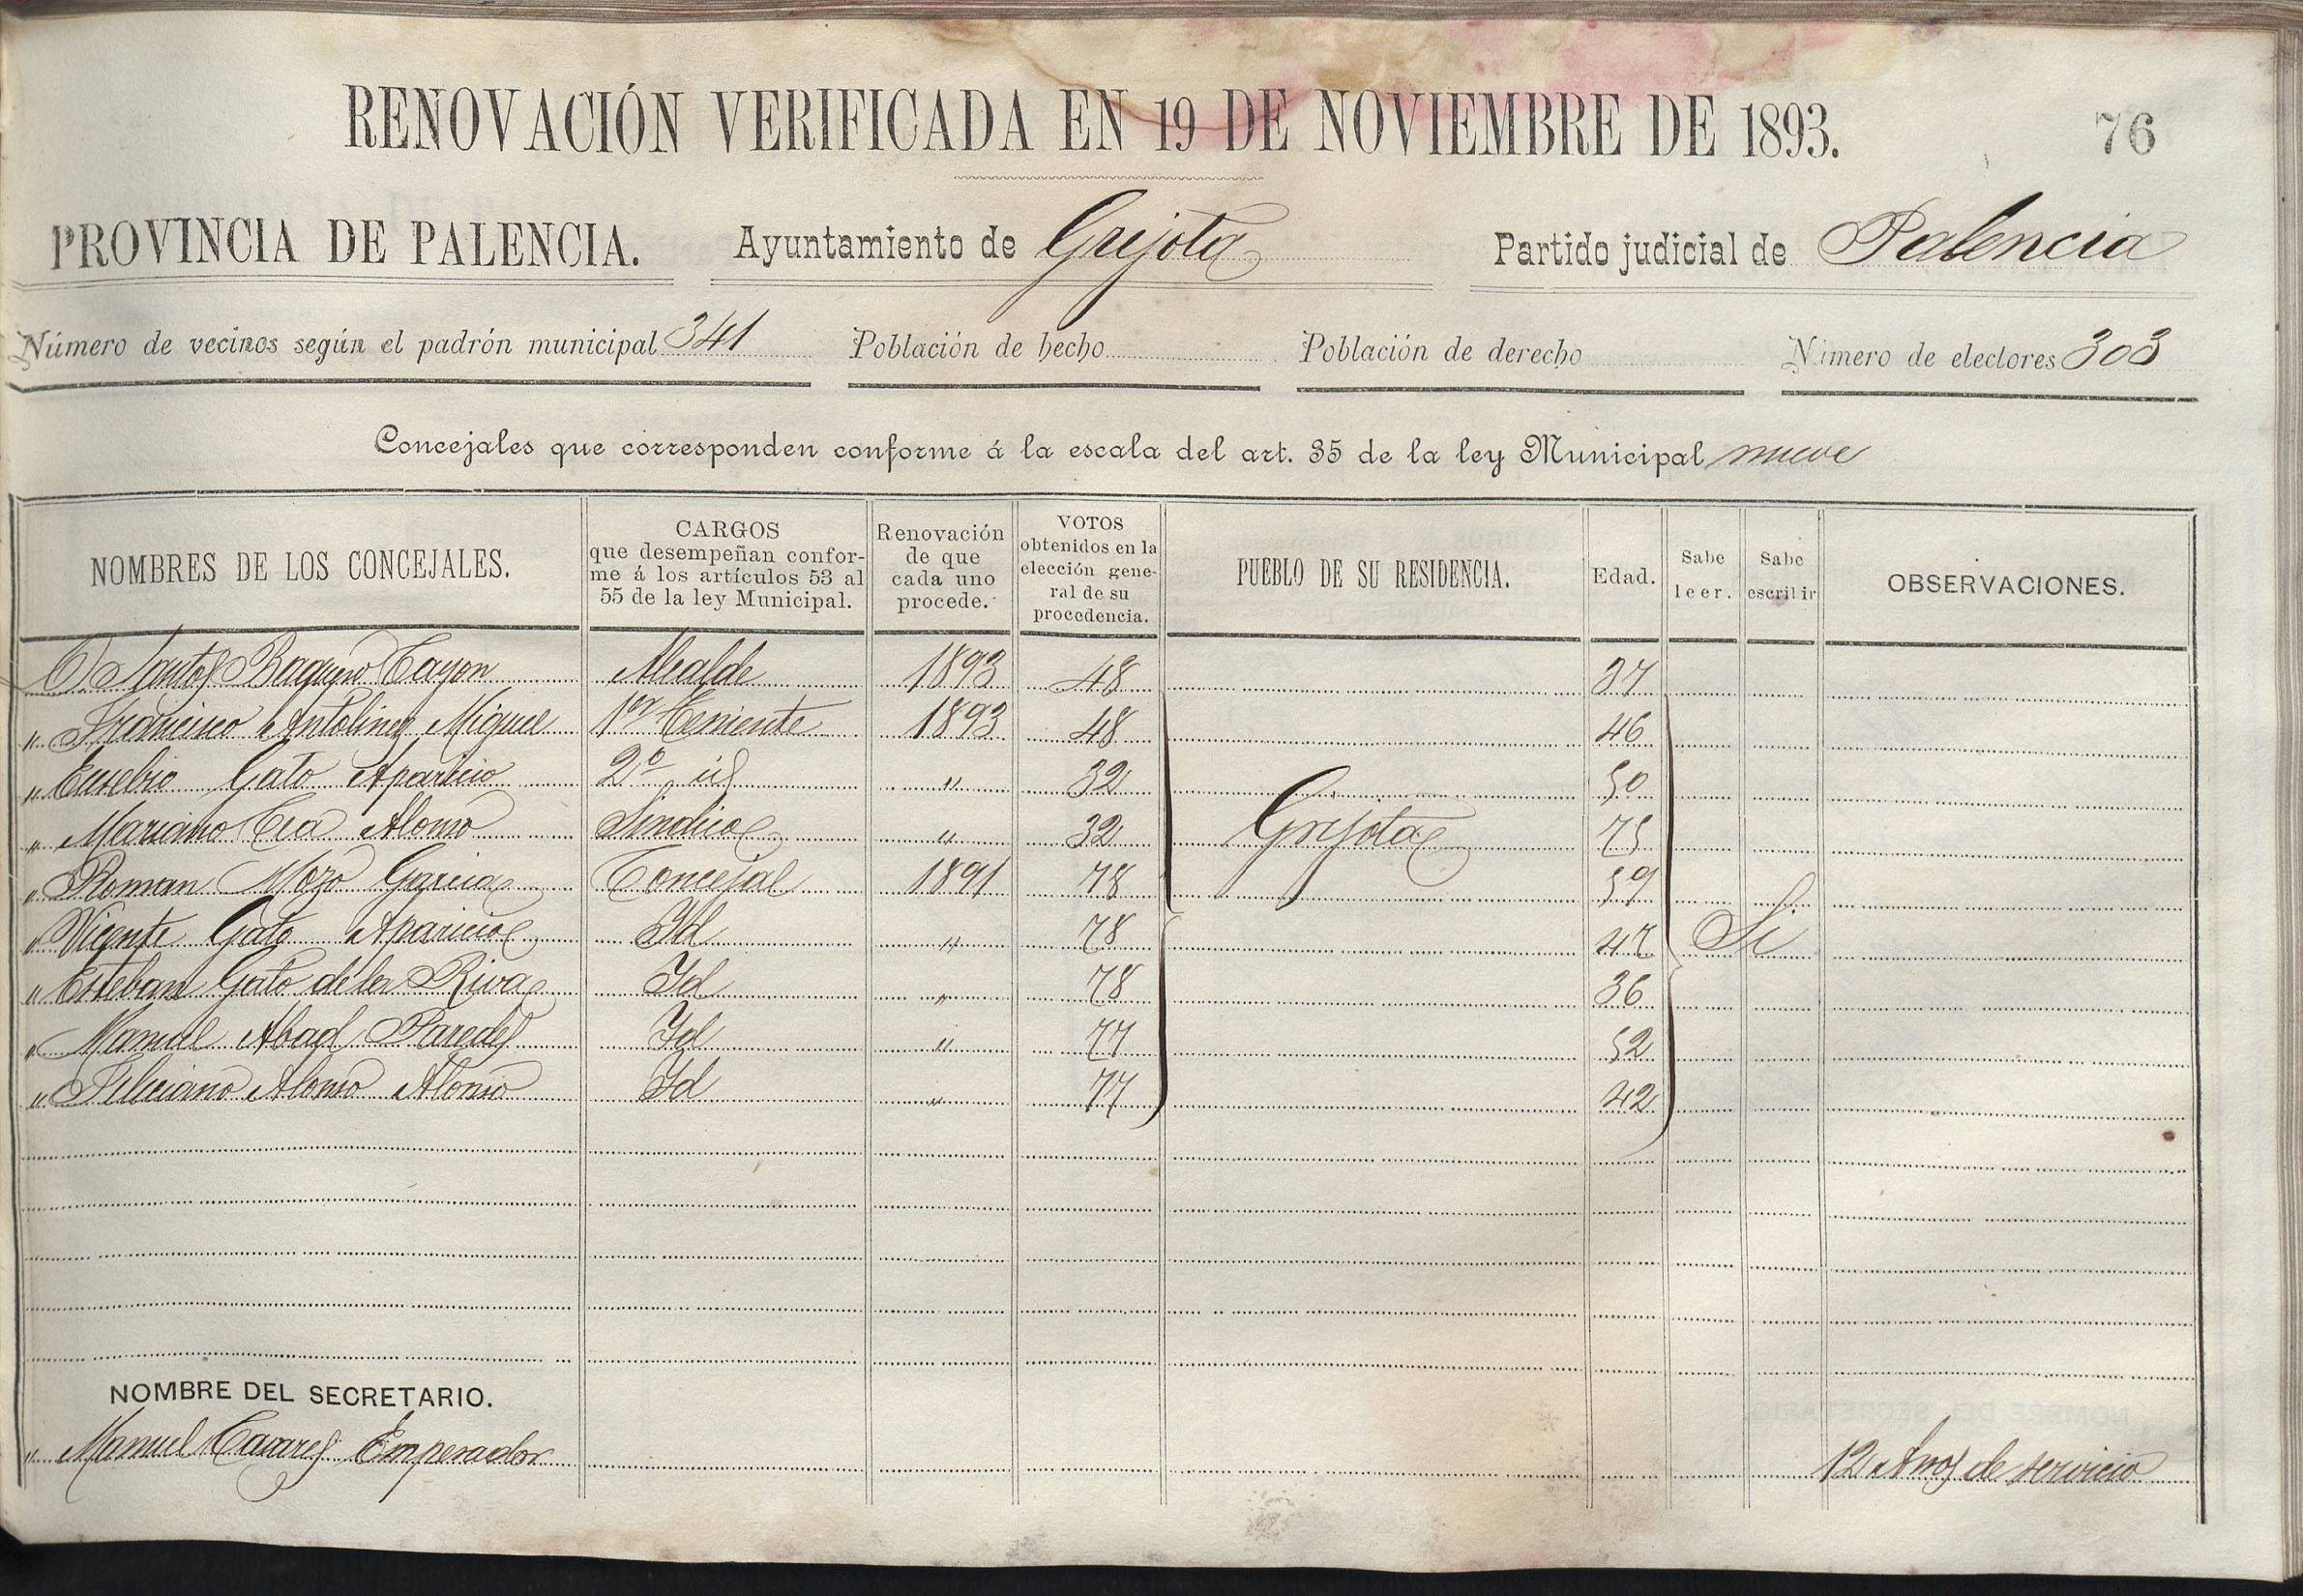 RENOVACIÓN VERIFICADA EN 19 DE NOVIEMBRE DE 1893. 76
PROVINCIA DE PALENCIA. Ayuntamiento de Grijota Partido judicial de Palencia
Número de vecinos según el padrón municipal 341 Población de hecho Población de derecho Número de electores 303
Concejales que corresponden conforme á la escala del art. 35 de la ley Municipal nueve
NOMBRES DE LOS CONCEJALES. CARGOS que desempeñan confor- me á los artículos 53 al 55 de la ley Municipal. Renovación de que cada uno procede. VOTOS obtenidos en la elección gene- ral de su procedencia. PUEBLO DE SU RESIDENCIA. Edad. Sabe leer. Sabe escribir OBSERVACIONES.
D. Santos Baquero Cayon Alcalde 1893 48 37
" Francisco Antolinez Miguel 1er Teniente 1893 48 46
" Eusebio Gato Aparicio 2º id " 32 50
" Mariano Cea Alonso Sindico " 32 Grijota 75
" Roman Mozo Garcia Concejal 1891 78 59
" Vicente Gato Aparicio Id " 78 47 Si
" Esteban Gato de la Riva Id " 78 36
" Manuel Abad Paredes Id " 77 52
" Feliciano Alonso Alonso Id " 77 42
NOMBRE DEL SECRETARIO.
" Manuel Emperador 12 Años de servicio